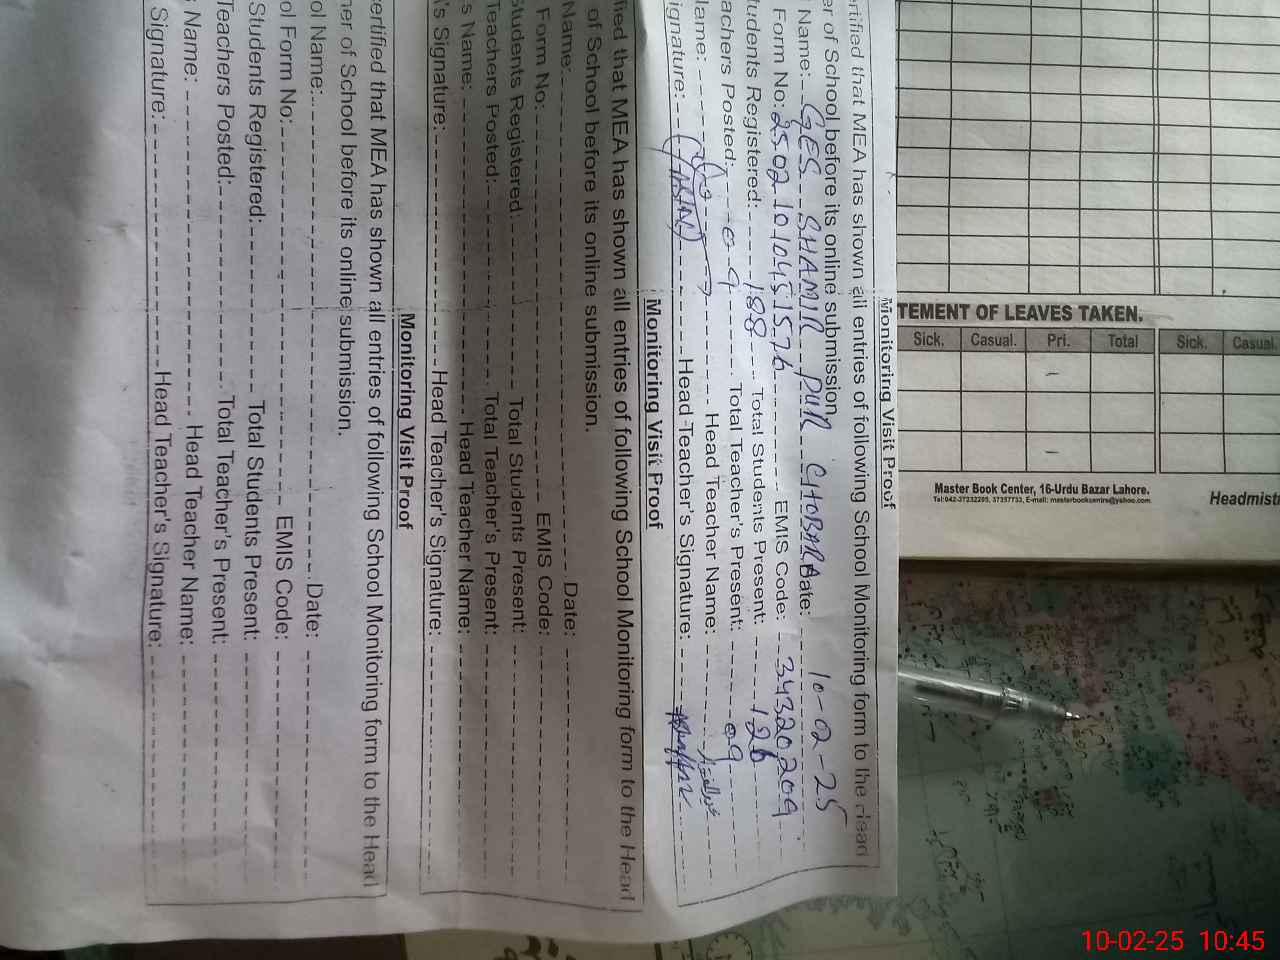 Monitoring Visit Proof
ertified that MEA has shown all entries of following School Monitoring form to the Head
er of School before its online submission.
Name: GES SHAMIR PUR CHOBARA Date: 10-02-25
Form No: EMIS Code: 34320209
tudents Registered: 188 Total Students Present: 126
achers Posted: 09 Total Teacher's Present: 09
Name: Head Teacher Name:
ignature: Head Teacher's Signature:
Monitoring Visit Proof
ified that MEA has shown all entries of following School Monitoring form to the Head
of School before its online submission.
Name: Date:
Form No: EMIS Code:
Students Registered: Total Students Present:
Teachers Posted: Total Teacher's Present:
s Name: Head Teacher Name:
's Signature: Head Teacher's Signature:
Monitoring Visit Proof
certified that MEA has shown all entries of following School Monitoring form to the Head
her of School before its online submission.
ol Name: Date:
ol Form No: EMIS Code:
Students Registered: Total Students Present:
Teachers Posted: Total Teacher's Present:
s Name: Head Teacher Name:
Signature: Head Teacher's Signature:
TEMENT OF LEAVES TAKEN.
Sick. Casual. Pri. Total Sick. Casual.
Master Book Center, 16-Urdu Bazar Lahore.
Headmist
10-02-25 10:45